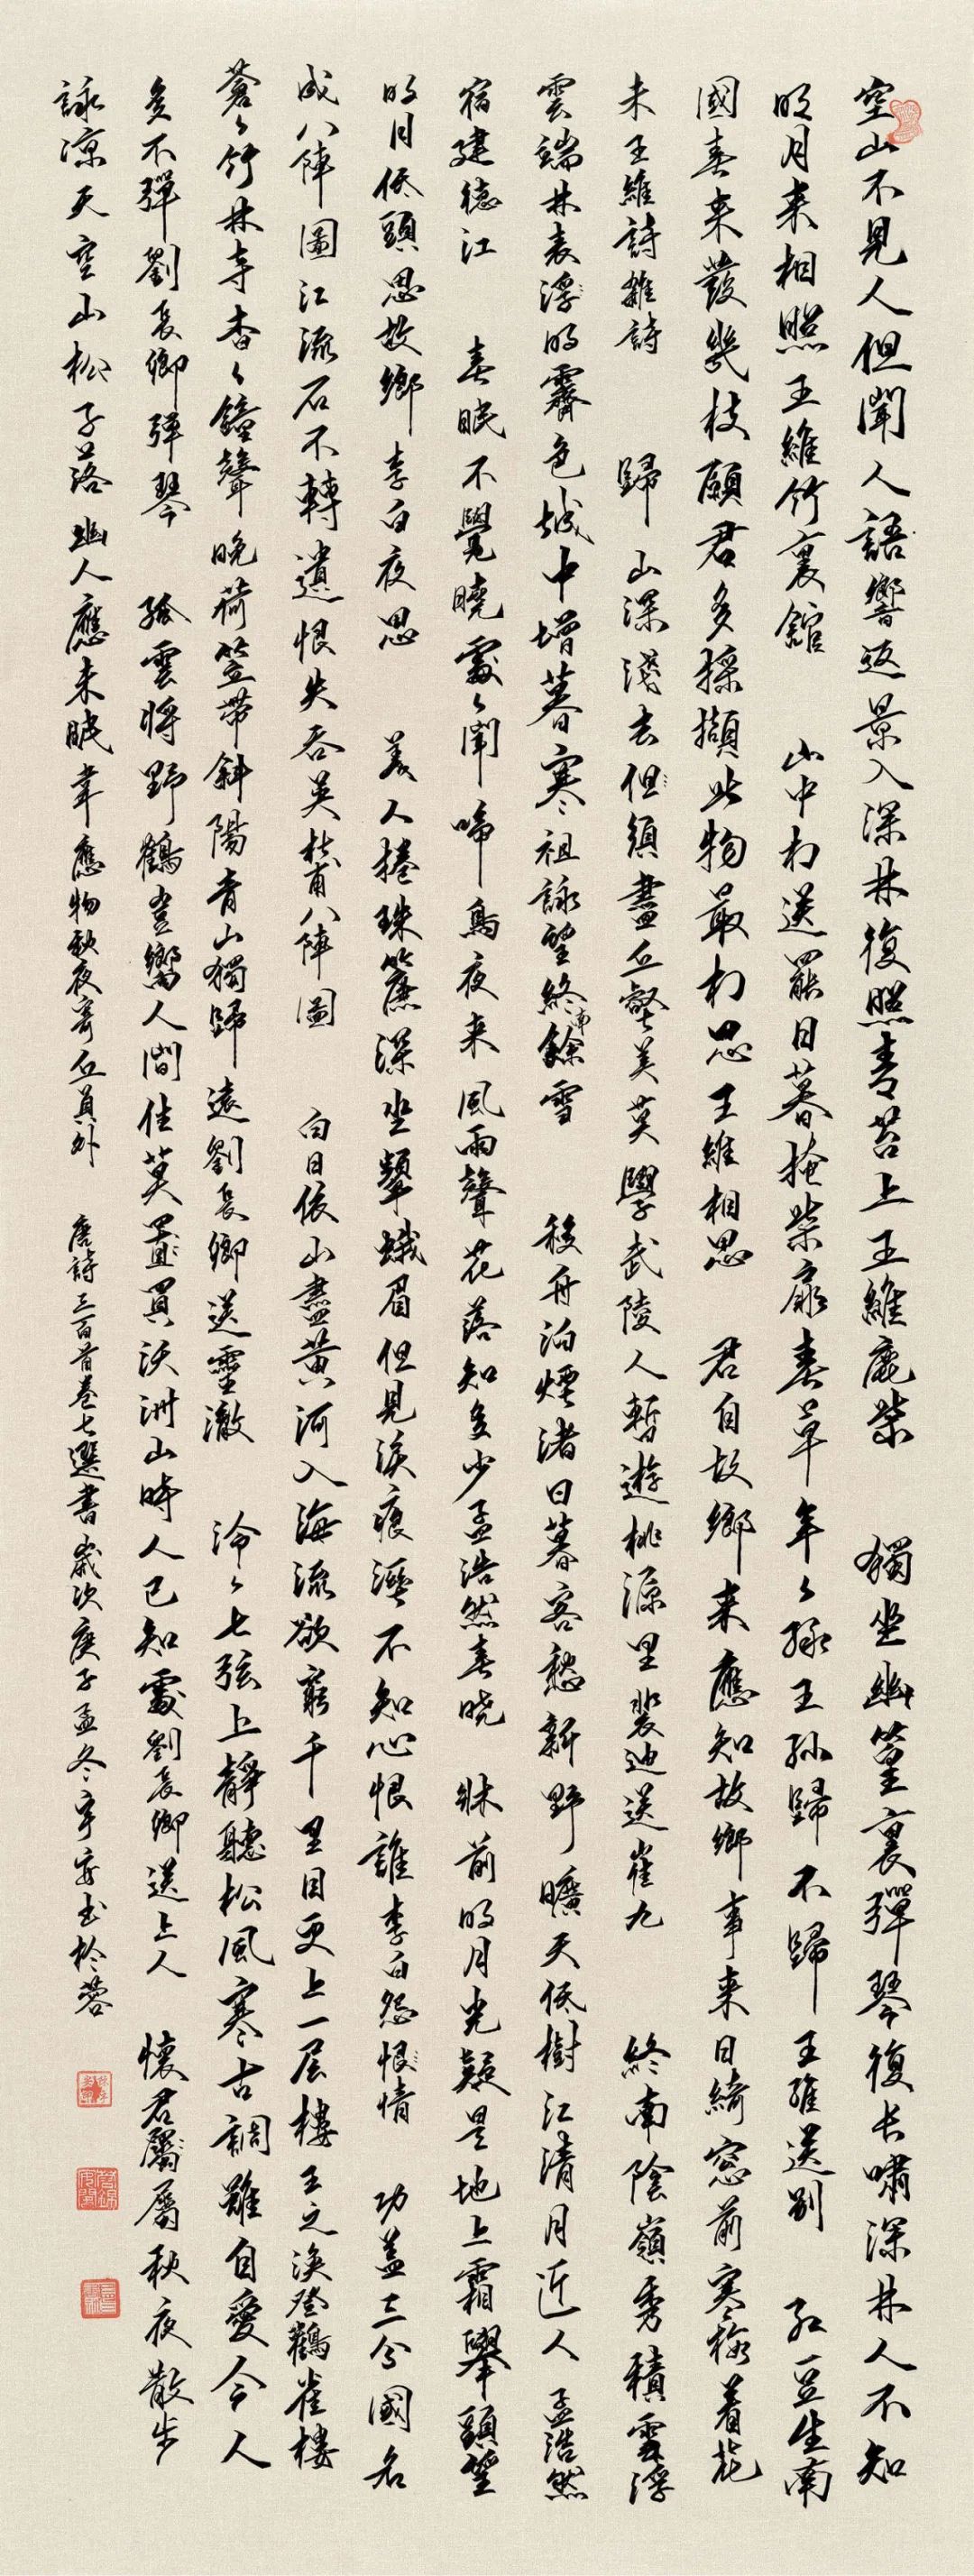 空山不見人但聞人語響返景入深林復照青苔上王維鹿柴 獨坐幽篁裏彈琴復長嘯深林人不知
明月来相照王維竹裏舘 山中相送罷日暮掩柴扉春草年々綠王孫歸不歸 王維送別 紅豆生南
國春来發幾枝願君多採擷此物最相思王維相思 君自故鄉来應知故鄉事来日綺窓前寒梅着花
未王維詩雜詩 歸山深淺去但須盡丘壑美莫學武陵人暫遊桃源里裴迪送崔九 終南陰嶺秀積雪浮
雲端林表浮明霽色城中增暮寒祖詠望終南餘雪 移舟泊煙渚日暮客愁新野曠天低樹江清月近人 孟浩然
宿建德江 春眠不覺曉處々聞啼鳥夜来風雨聲花落知多少孟浩然春曉 牀前明月光疑是地上霜舉頭望
明月低頭思故鄉 李白夜思 美人捲珠簾深坐顰蛾眉但見淚痕濕不知心恨誰李白怨恨情 功蓋三分國名
成八陣圖江流石不轉遺恨失吞吳杜甫八陣圖 白日依山盡黃河入海流欲窮千里目更上一層樓王之渙登鸛雀樓
蒼々竹林寺杳々鐘聲晚荷笠帶斜陽青山獨歸遠劉長卿送靈澈 泠々七弦上靜聽松風寒古調雖自愛今人
多不彈劉長卿彈琴 孤雲將野鶴豈嚮人間住莫置買沃洲山時人已知處劉長卿送上人 懷君屬屬秋夜散步
詠涼天空山松子落幽人應未眠韋應物秋夜寄丘員外 唐詩三百首卷七選書歲次庚子孟冬宇安書於蓉